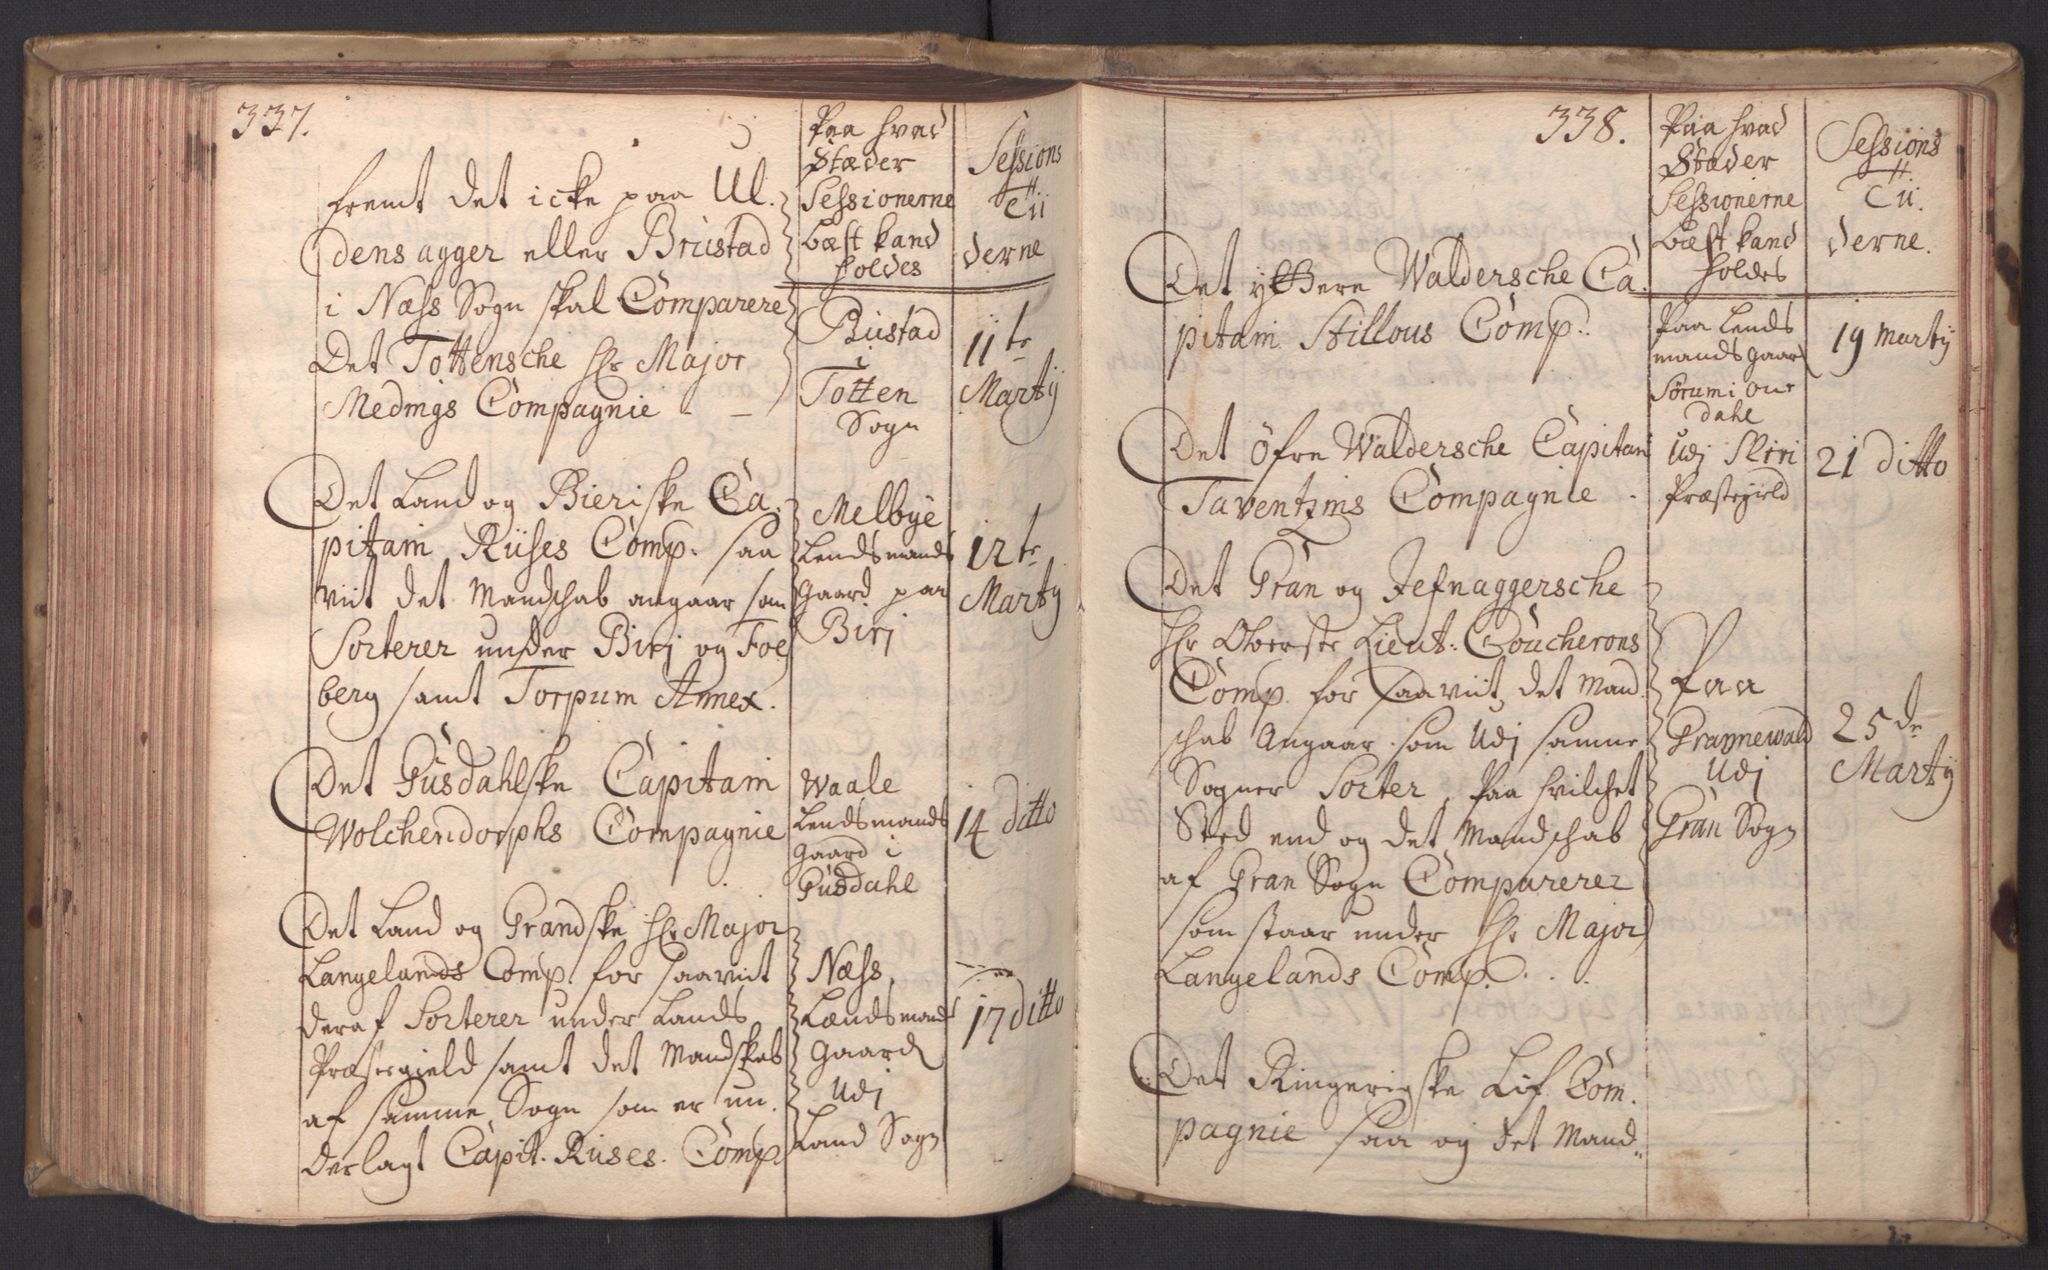 337.
Paa hvad
Stæder
Sessionerne
bæst kand
holdes
Sessions
Tii
derne
fremt det icke paa Ul.
dens agger eller Brustad
i Næss Sogn skal Comparere
Det Tottensche Hr Major
Medings Compagnie - -
Bustad
i
Totten
Sogn
11te
Martij
Det Land og Bieriske Ca.
pitain Riises Comp. saa
viit det Mandschab angaar som
Sorterer under Biri og Foe
berg samt Torpum Annex.
Melbye
Lendsmands
Gaard paa
Biri
12te
Martij
Det Gusdahlske Capitain
Wolchendorphs Compagnie
Waale
Lendsmands
Gaard i
Gusdahl
14 ditto
Det Land og Grandske Hr Major
Langelands Comp. for saaviit
deraf Sorterer under Lands
Præstegield samt det Mandskab
af samme Sogn som er un.
derlagt Capit. Riises. Comp
Næss
Lændsmands
Gaard
Udj
Land Sogn
17 ditto
338.
Paa hvad
Stæder
Sessionerne
bæst kand
holdes
Sessions
Tii.
derne.
Det yttere Waldersche Ca.
pitain Stillous Comp.
Paa Lends
mands gaard
Sørum i our
dahl
19 Martij
Det Øfre Waldersche Capitain
Taventzins Compagnie -
Udj Sliri
Præstegield
21 ditto
Det Gran og Jefnaggersche
Hr Oberste Lieut. Coucherons
Comp. for saaviit det Mand.
schab Angaar som Udj samme
Sogner Sorter, Paa hvilchet
Sted end og det Mandschab
af Gran Sogn Comparerer
som staar under Hr Major
Langelands Comp. . .
Paa
Grannewald
Udj
Gran Sogn
25de
Martij
Det Ringerigske Lif Com.
pagnie saa og det Mand„